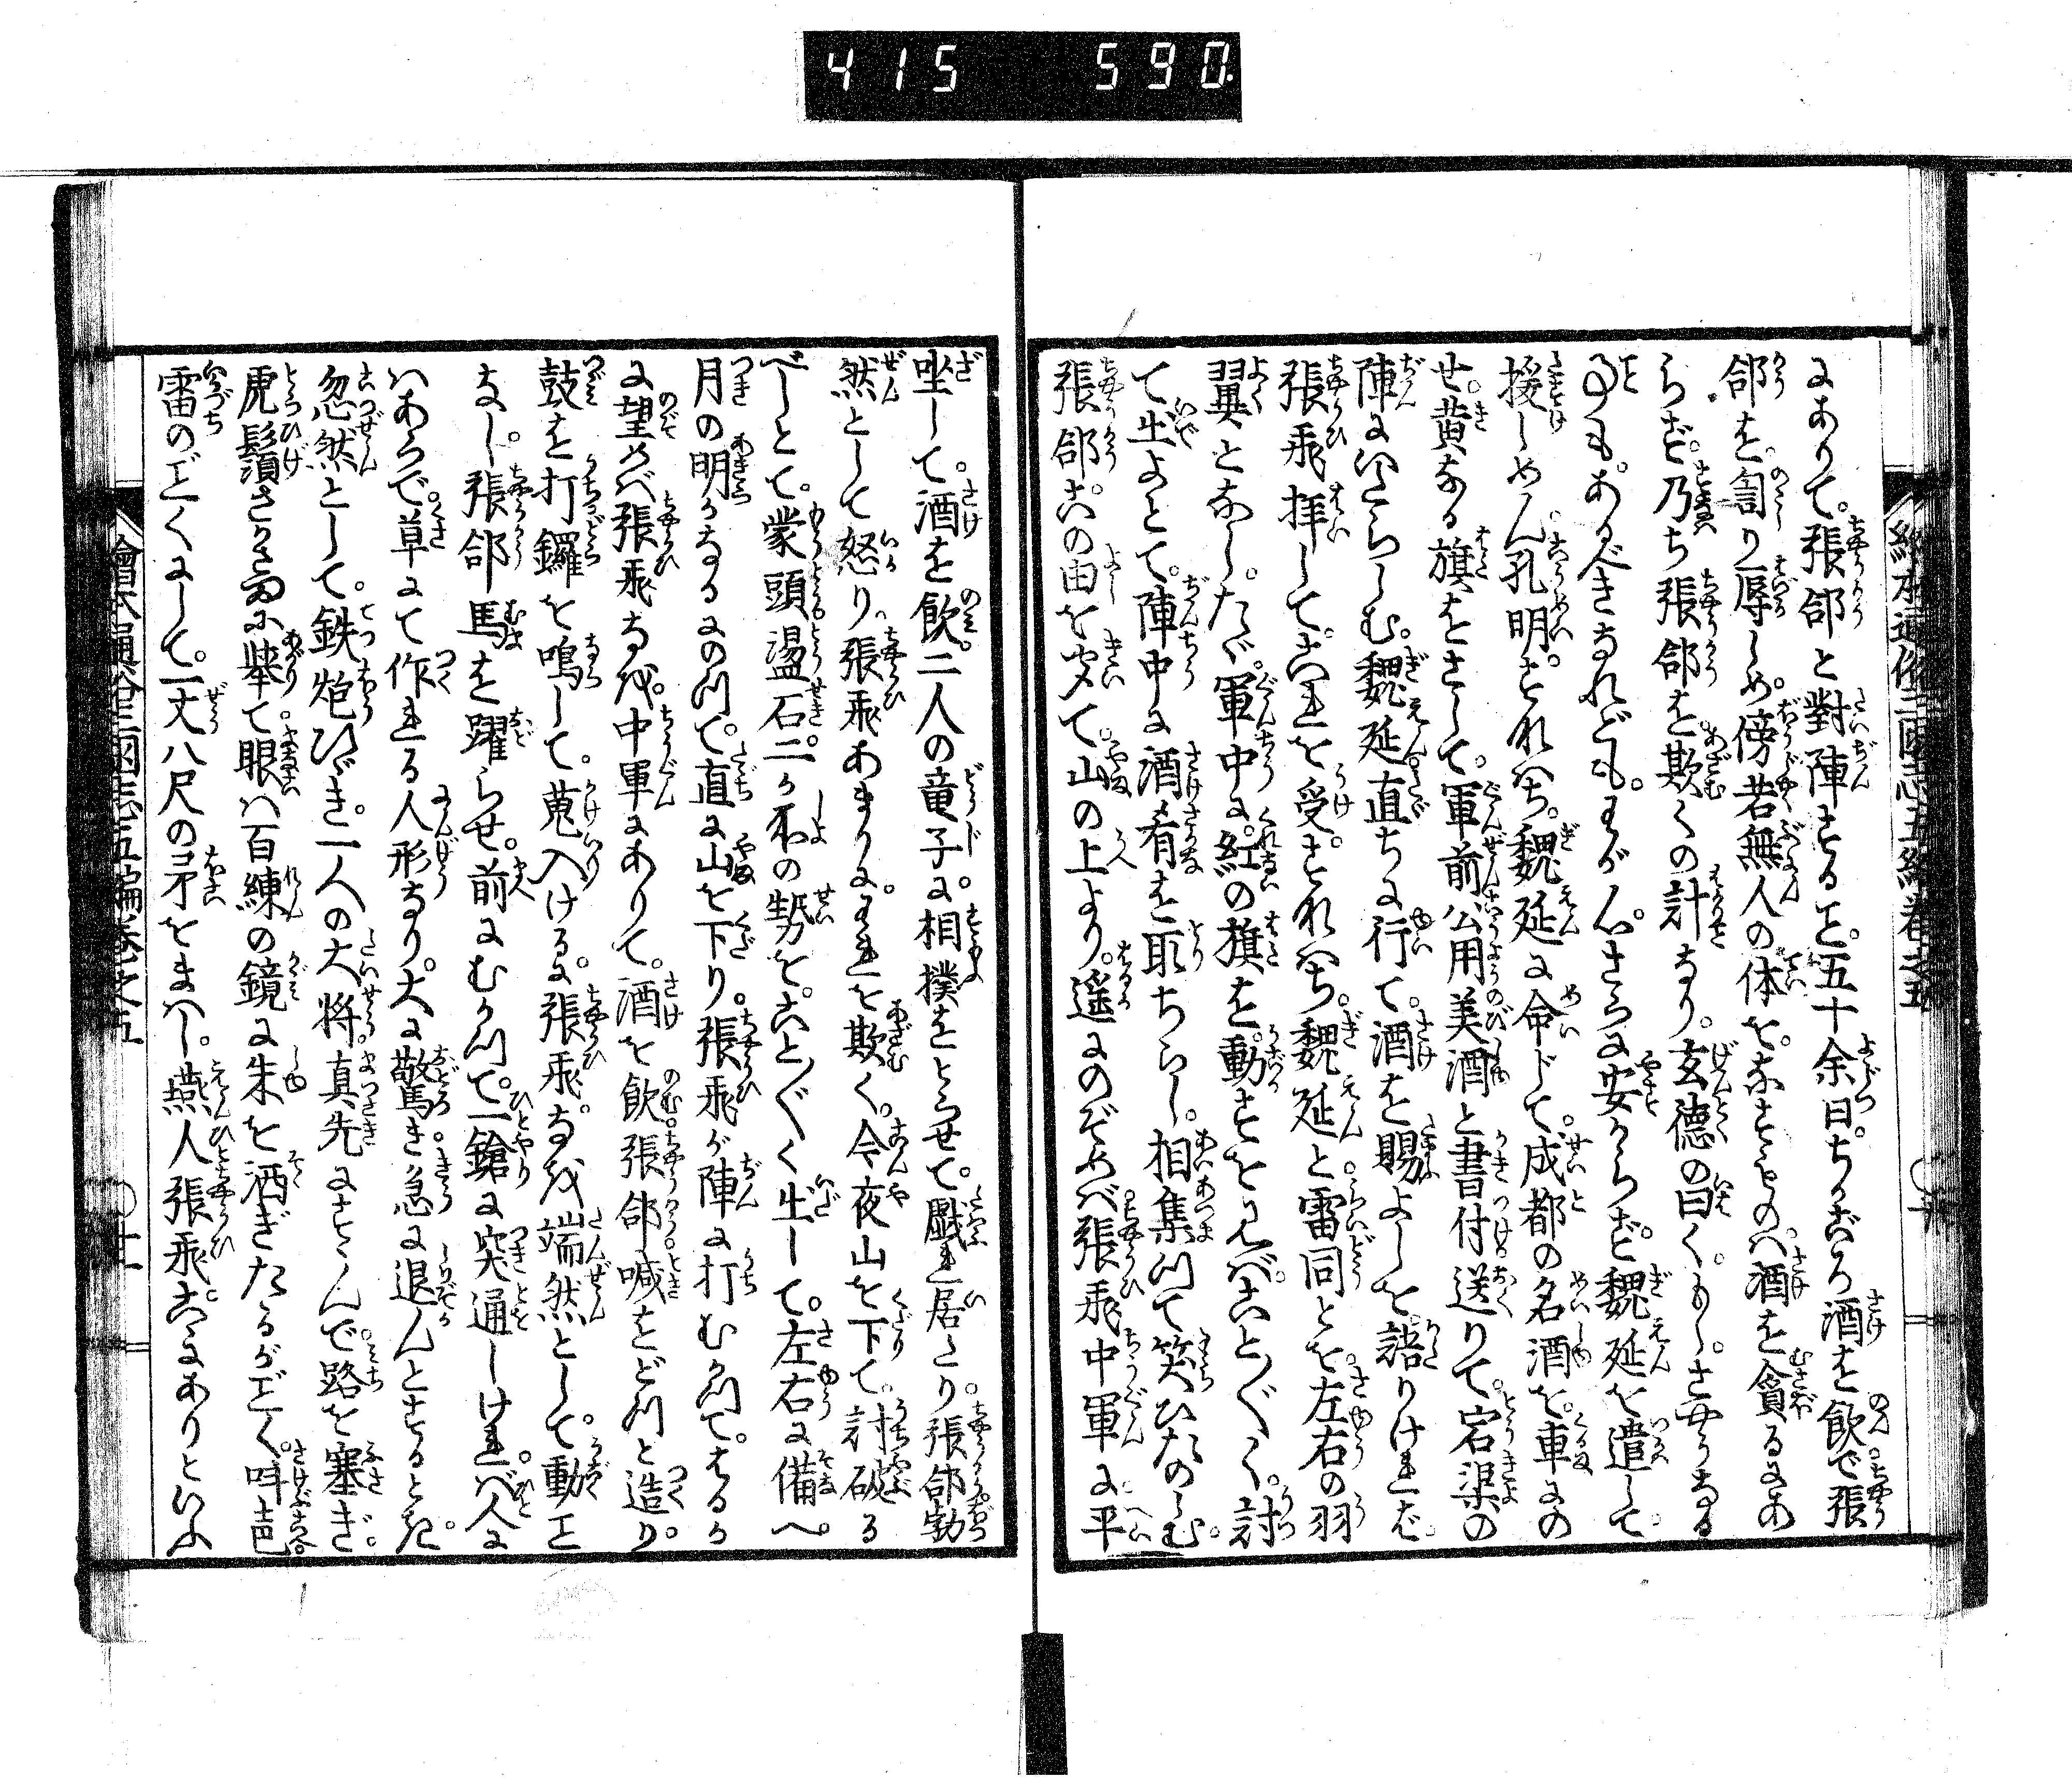 415 590.
にありて。張郃と對陣すること。五十余日。ちかごろ酒を飲で張
郃を詈り辱しめ。傍若無人の体を。なすものハ。酒を貪るにあ
らず。乃ち張郃を欺くの計なり。玄徳の曰く。もし。さやうなる
事も。あるべきなれども。わが心さらに安からず。魏延を遣して
援しめん。孔明。すなハち。魏延に命じて。成都の名酒を。車にの
せ。黄なる旗をさして。軍前公用美酒と書付送りて。宕渠の
陣にいたらしむ。魏延直ちに行て。酒を賜よしを。語りけれバ。
張飛拝して。これを受。すなハち。魏延と雷同とを。左右の羽
翼となし。たゞ。軍中に。紅の旗を。動すをミバ。こと〴〵く。討
て出よとて。陣中に酒肴を取ちらし。相集つて笑ひたのしむ。
張郃。この由を聞て。山の上より。遥にのぞめバ。張飛中軍に平
坐して。酒を飲。二人の童子に。相撲をとらせて。戯れ居たり。張郃勃
然として怒り。張飛あまりに。われを欺く。今夜山を下て。討破る
べしとて。蒙頭盪石。二か所の勢を。こと〴〵く出して。左右に備へ。
月の明かなるにのつて。直に山を下り。張飛が陣に打むかつて。はるか
に望めバ。張飛なを。中軍にありて。酒を飲。張郃。喊をどつと造り。
鼓を打鑼を鳴して。蒐入けるに。張飛。なを端然として。動こと
なし。張郃馬を躍らせ。前にむかつて。一鎗に突通しけれバ。人に
ハあらで。草にて作れる人形なり。大に驚き。急に退んとするとき。
忽然として。鉄炮ひゞき。一人の大将。真先にすゝんで。路を塞ぎ。
虎鬚さかさまに挙て。眼ハ百練の鏡に朱を洒ぎたるがごく。叫声
雷のごくにして。一丈八尺の矛をまハし。燕人張飛。こゝにありといふ
繪本通俗三國志五編巻之五